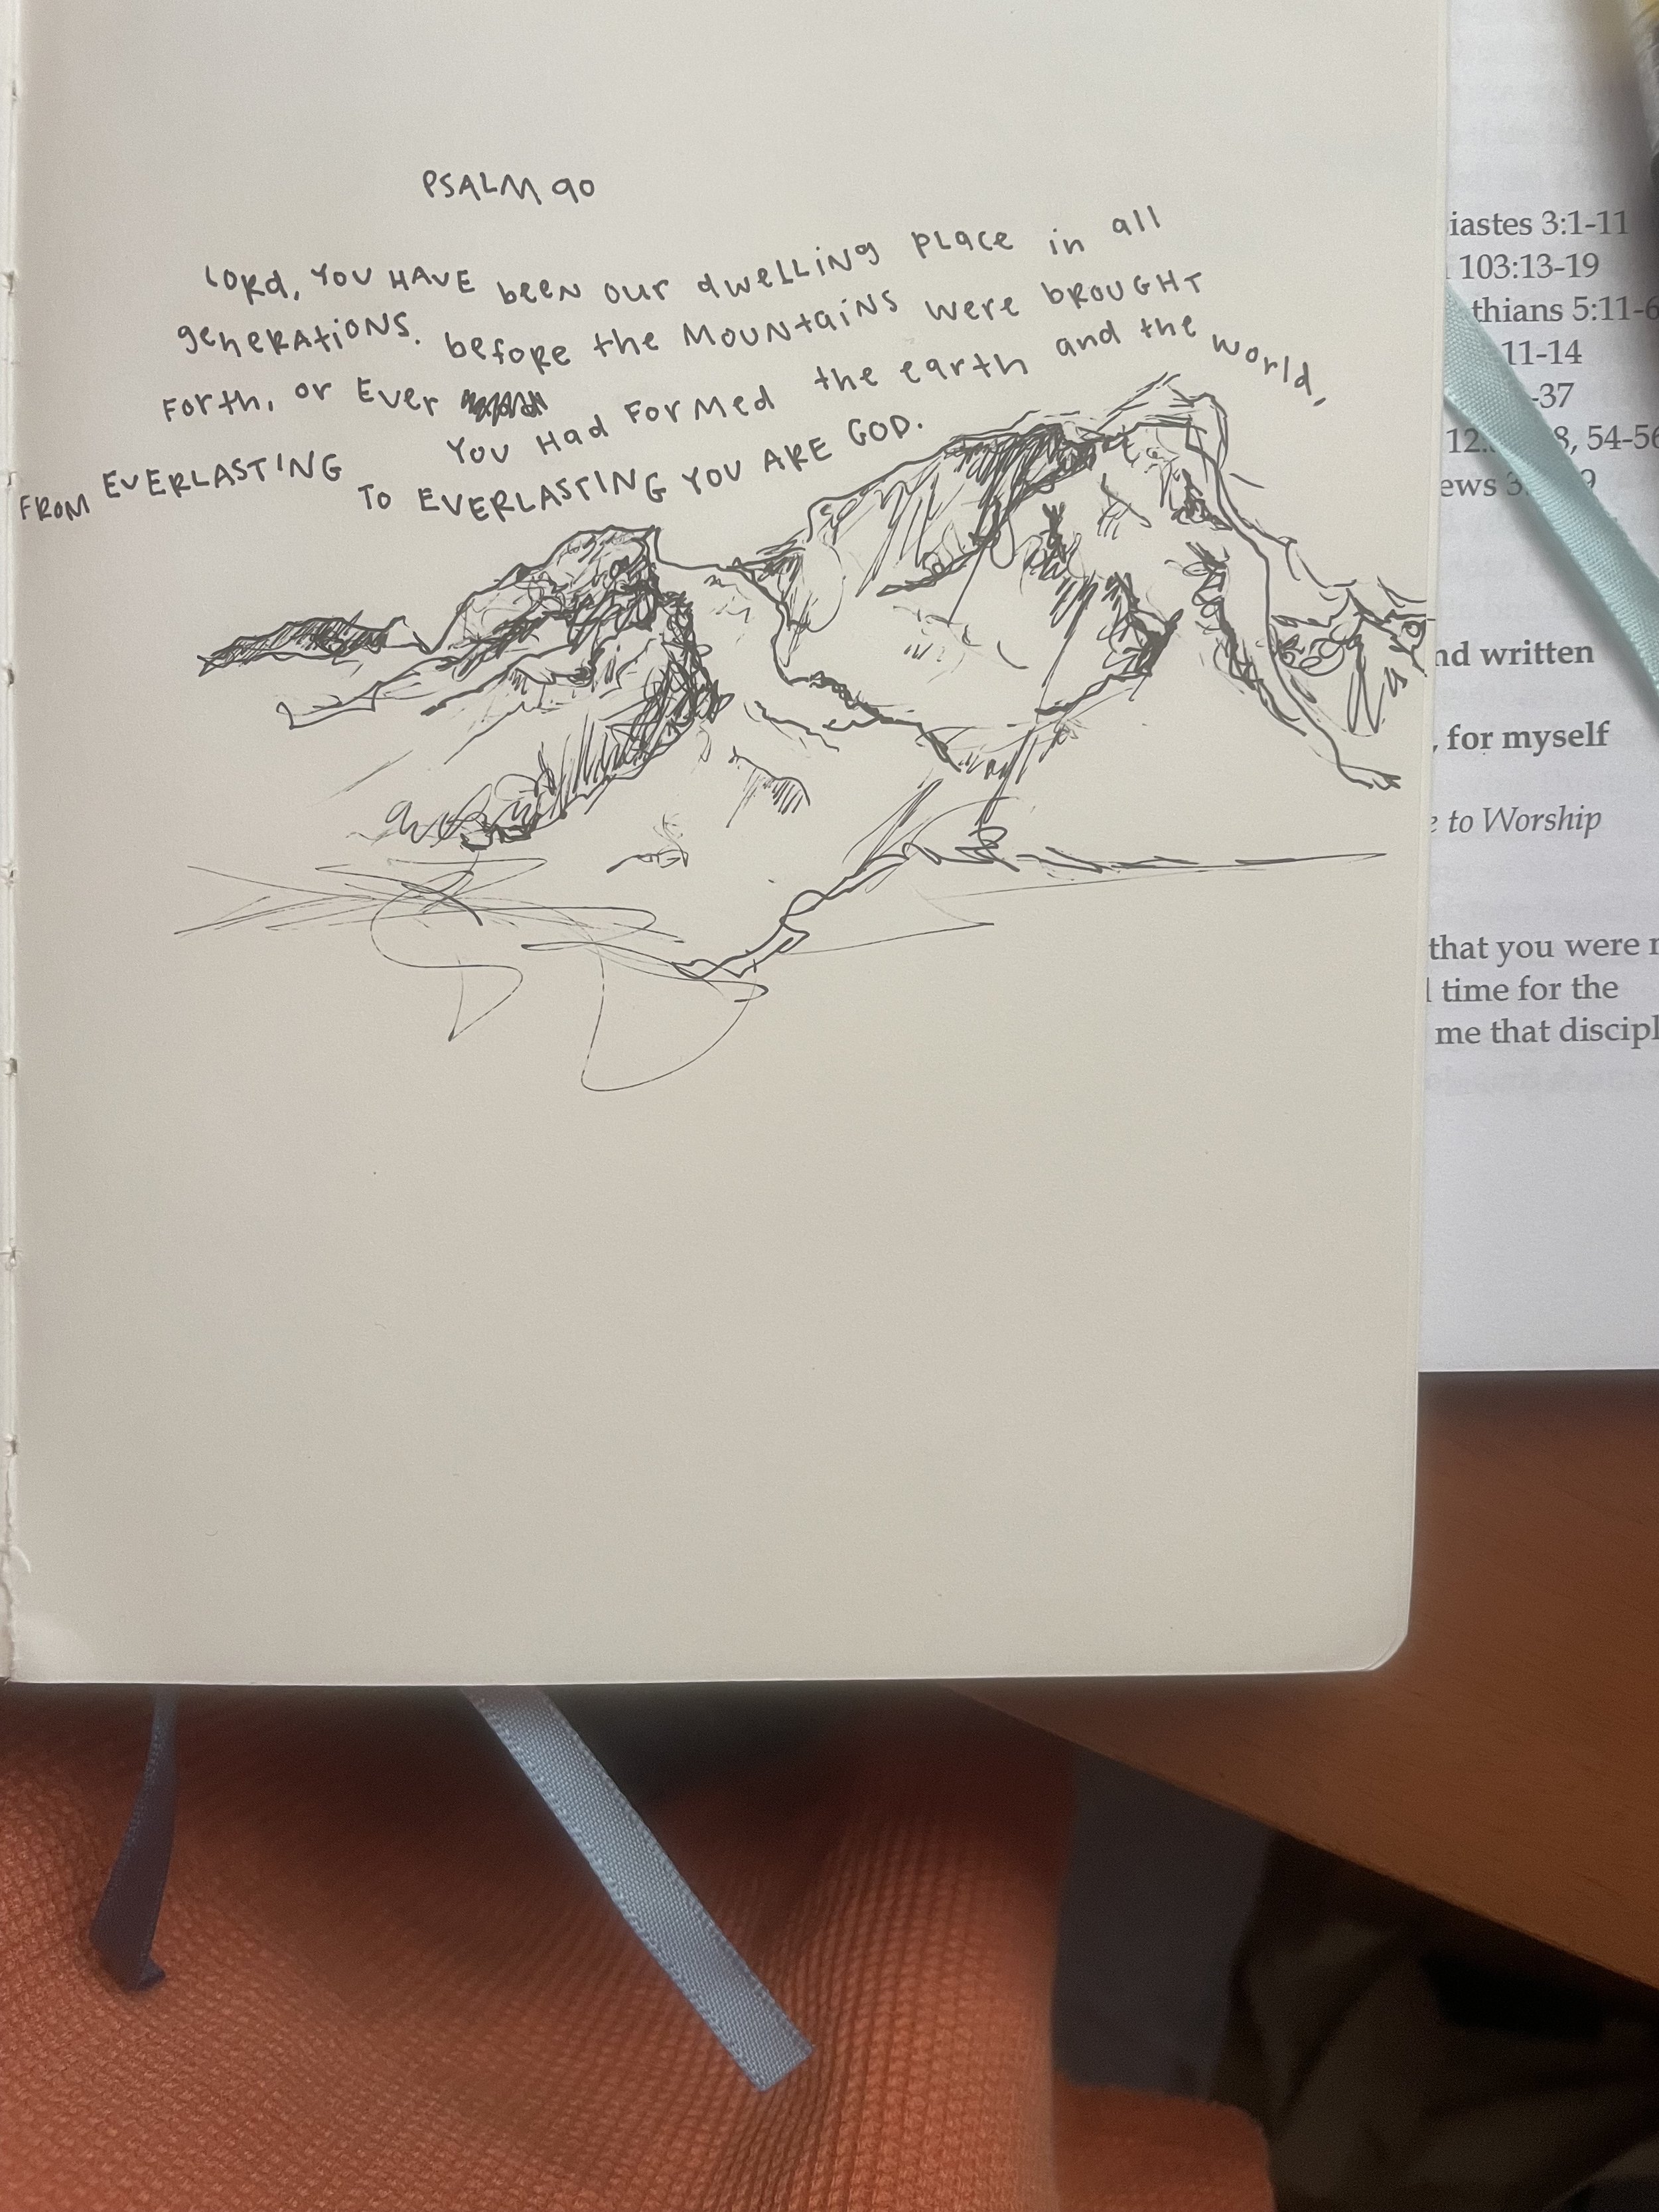 PSALM 90
LORd, YOU HAVE been our dwelling place in all
generations. before the Mountains were brought
Forth, or Ever
You Had Formed the earth and the world,
FROM EVERLASTING TO EVERLASTING YOU ARE GOD.
iastes 3:1-11
103:13-19
thians 5:11-6
11-14
-37
12. 8, 54-56
ews 3. 9
nd written
, for myself
e to Worship
that you were
time for the
me that discipl